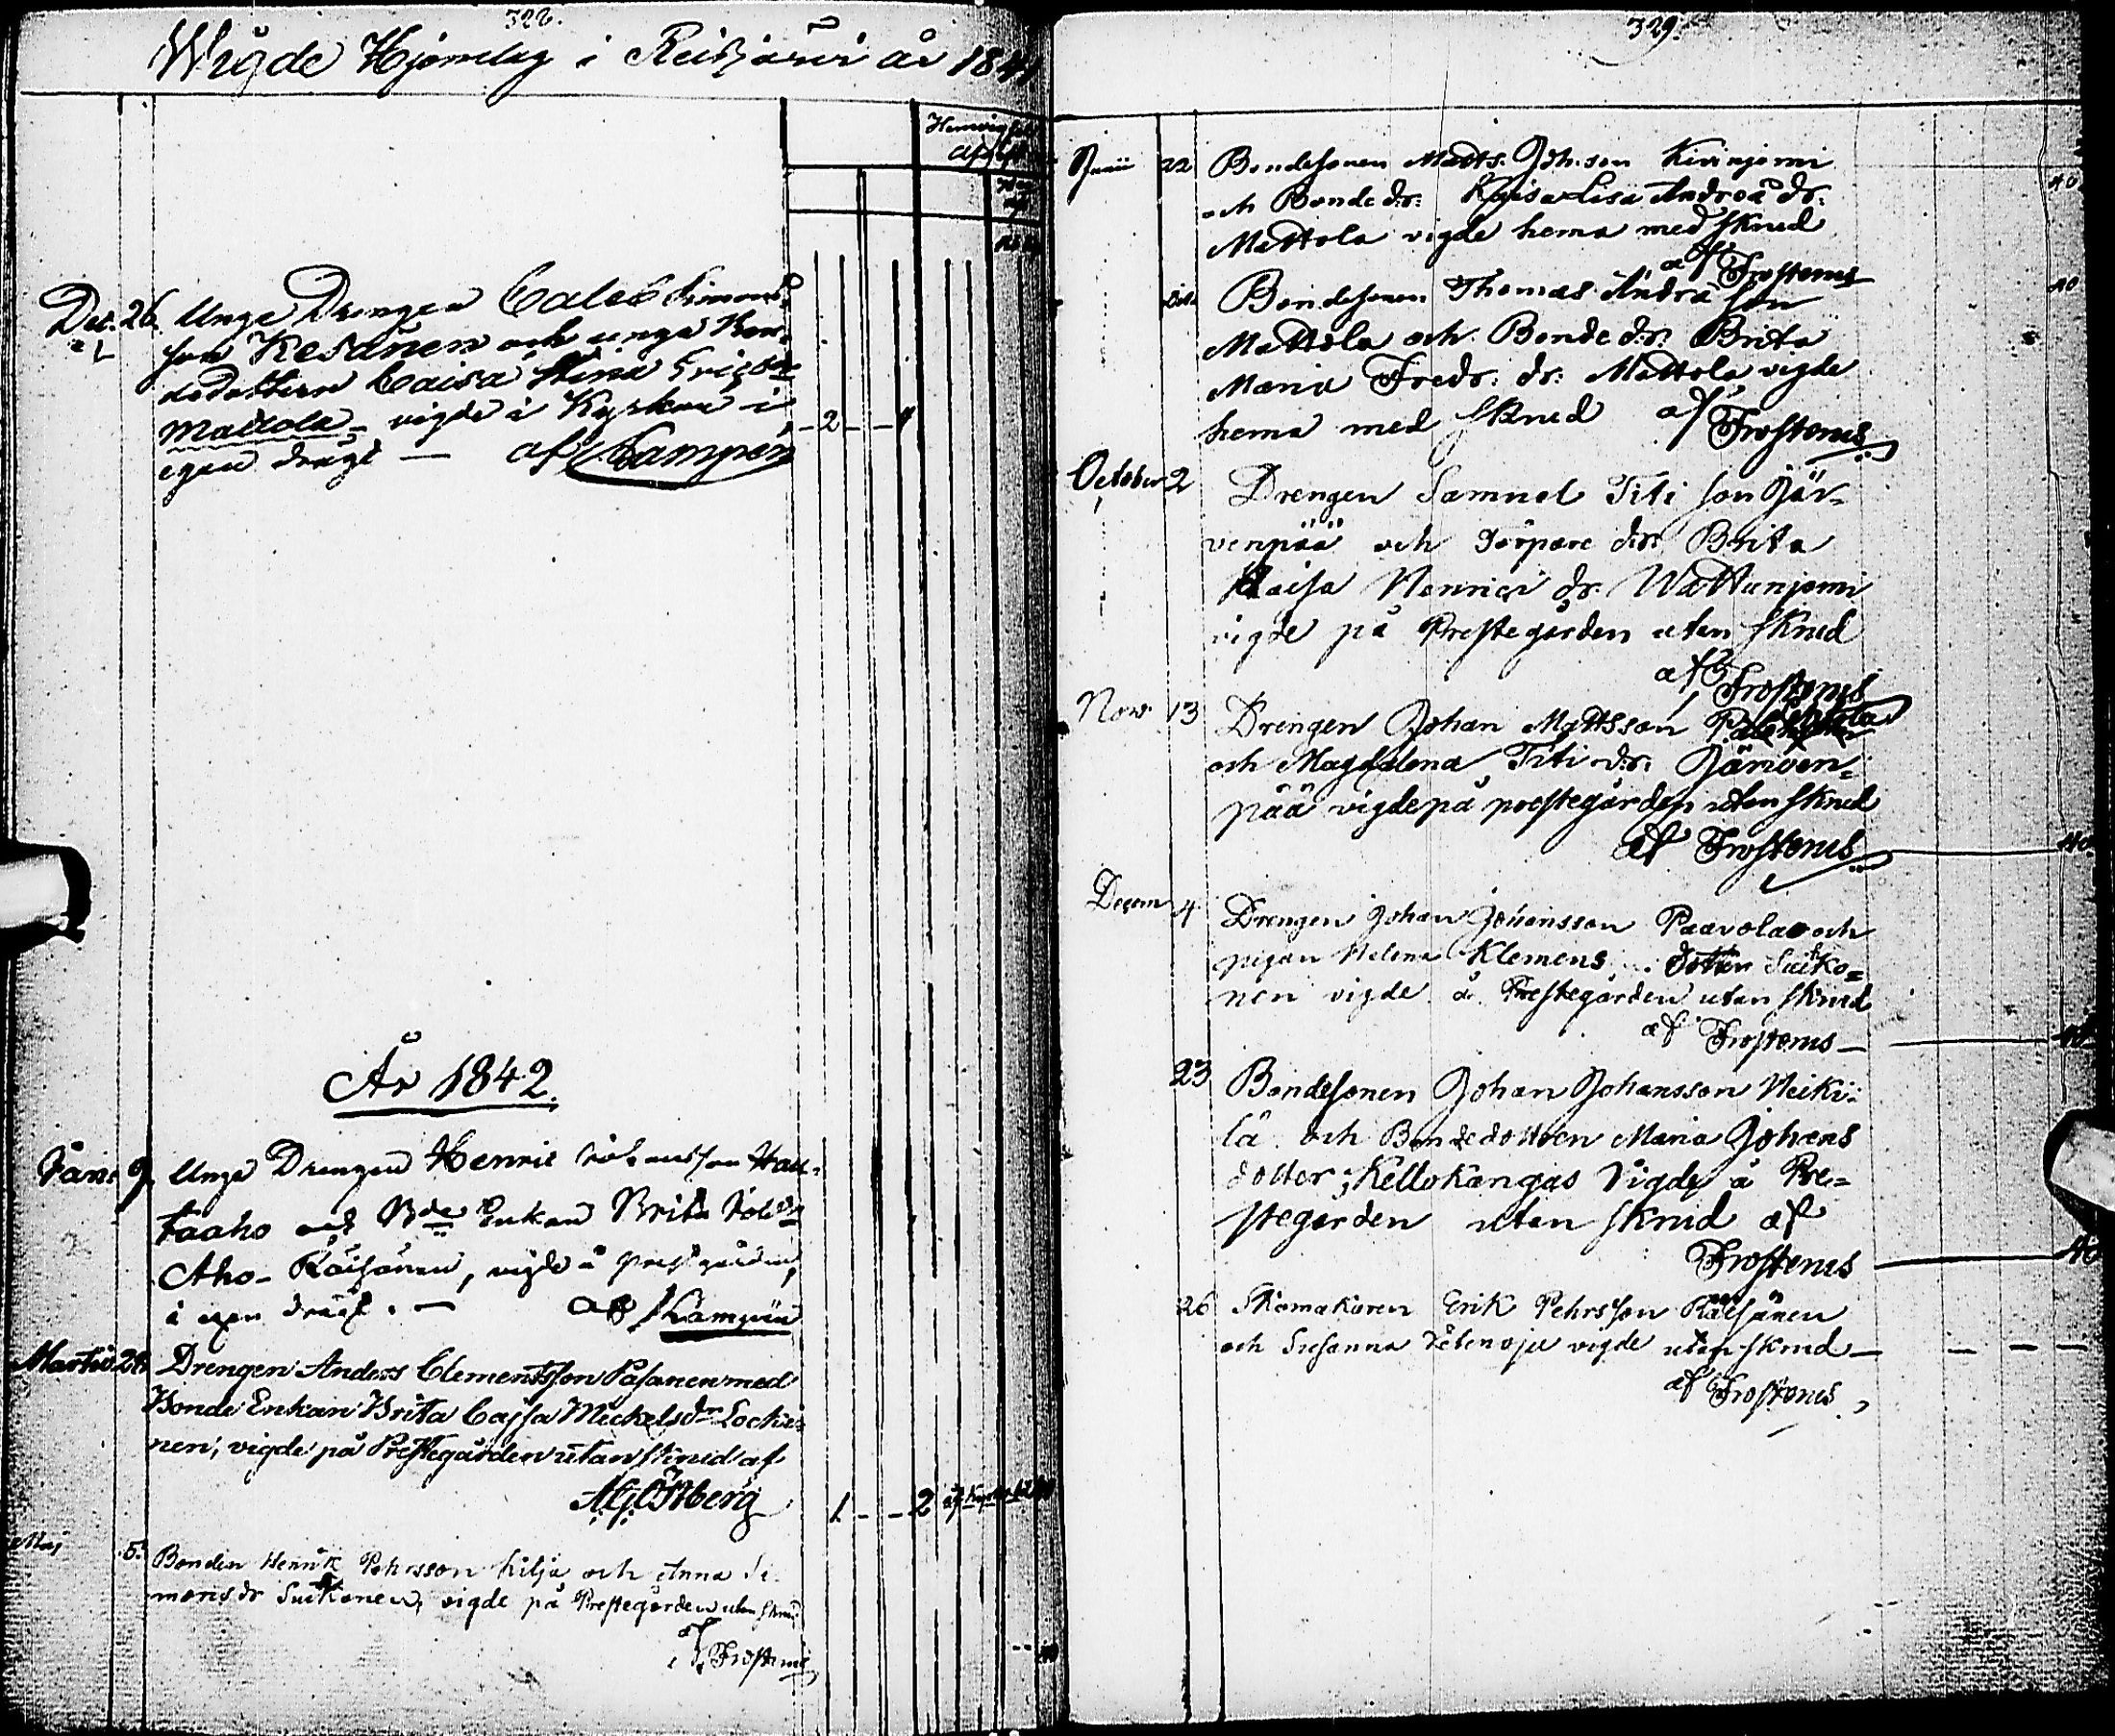 328.
Wigde Hjonelag i Reisjärvi år 1841
Hemvigsel
Dec. 26. Unge Drengen Caleb Simons
son Kesänen och unga Bon-
dedottern Caisa Stina Ericsdr
Mattola, vigde i Kyrkan i
egen drägt — af Kampén
- 2 - - 4
År 1842.
Jan: 9. Unge Drengen Henric Johansson Hau-
taaho och Bde Enkan Brita Johsdr
Aho-Räisänen, vigde å prestgården,
i egen drägt. — af Kampén
Martii 28. Drengen Anders Clementsson Pasanen med
Bonde Enkan Brita Cajsa Mickelsdr Locki-
nen, vigde på Prestegården utan skrud af
A.G. Östberg
1 - - 2
Maj 5. Bonden Henrik Pehrsson Kilja och Anna Si-
monsdr Suikonen, vigde på Prestegården utan skrud
af Frosterus
329.
Junii 22 Bondesonen Matts Joh:son Kiviniemi
och Bonde dr: Kajsa Lisa Andreä dr:
Mattola vigde hema med skrud
af Frosterus
40
Bondesonen Thomas Andrä son
Mattola och Bonde dr: Brita
Maria Fredr: dr: Mattola vigde
hema med skrud af Frosterus
40
October 2 Drengen Samuel Titi son Jär-
venpää och Torpare dr: Brita
Kaisa Henrics dr: Wattuniemi
vigde på Prestegården utan skrud
af Frosterus
Nov: 13 Drengen Johan Mattsson
och Magdalena Titi dr: Järven-
pää vigde på prestegården utan skrud
af Frosterus
40
Decem 4 Drengen Johan Johansson Paavola och
pigan Helena Klemens dotter Suiko-
nen vigde å Prestegården utan skrud
af Frosterus —
40
23 Bondesonen Johan Johansson Heiki-
lä och Bondedottren Maria Johans
dotter Kellokangas Vigde å Pre-
stegården utan skrud af
Frosterus
40
26 Skomakaren Erik Pehrsson Räisänen
och Susanna vigde utan skrud —
af Frosterus